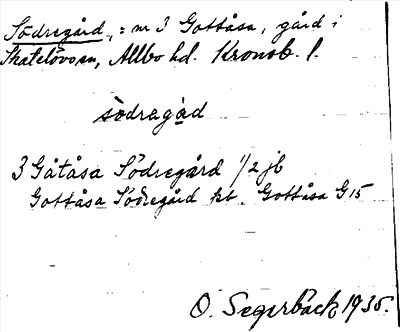 Södregård, = nr 3 Gottåsa, gård i
Skatelövssn, Allbo hd. Kronob. l.
södragåd
3 Gåtåsa Södregård 1/2 jb
Gottåsa Södregård kt. Gottåsa G 15
O. Segerbäck 1935.